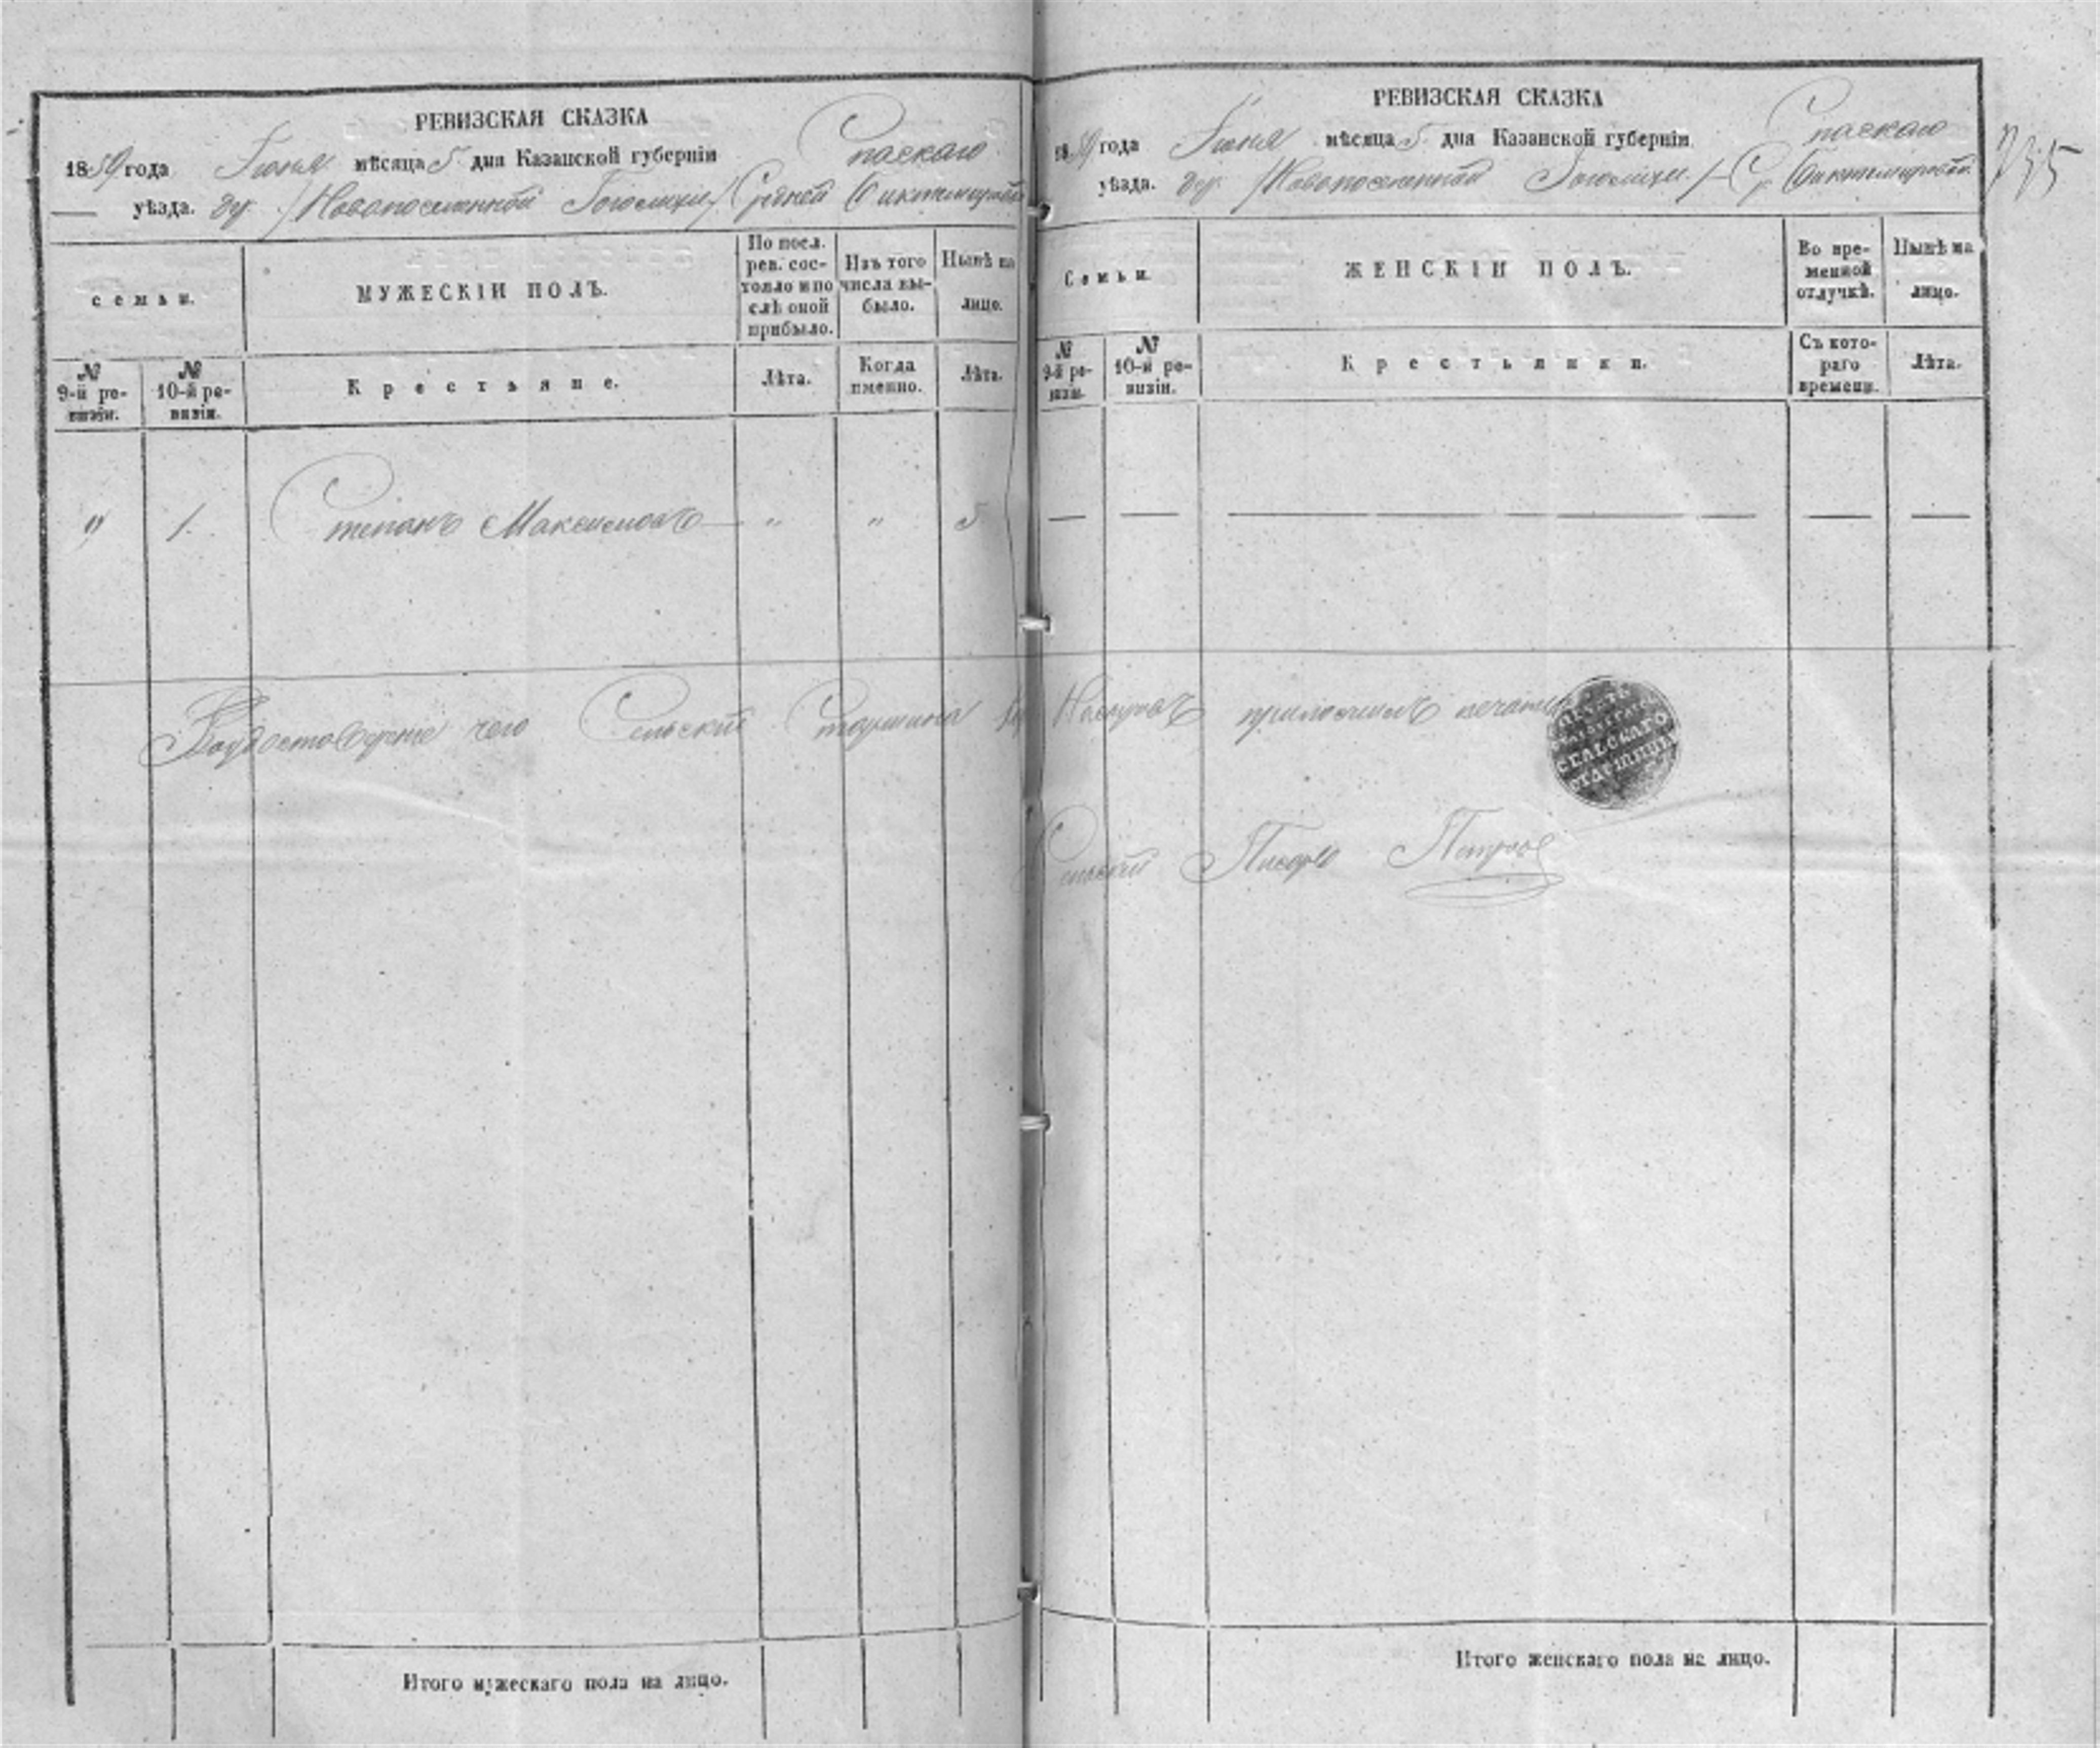 РЕВИЗСКАЯ СКАЗКА
1859 года Іюня мѣсяца 5 дня Казанской губерніи Спаскаго
уѣзда. дер. /Новопоселенной Гоголихи/ Средней Биктемировой
семьи.
МУЖЕСКІЙ ПОЛЪ.
По посл. рев. состояло и по слѣ оной прибыло.
Изъ того числа выбыло.
Нынѣ на лицо.
№ 9-й ревизіи.
№ 10-й ревизіи.
Крестьяне.
Лѣта.
Когда именно.
Лѣта.
" 1. Степанъ Максимовъ — " " 5
РЕВИЗСКАЯ СКАЗКА
1859 года Іюня мѣсяца 5 дня Казанской губерніи Спаскаго
уѣзда. дер. /Новопоселенной Гоголихи/ Ср. Биктемировой
Семьи.
ЖЕНСКІЙ ПОЛЪ.
Во временной отлучкѣ.
Нынѣ на лицо.
№ 9-й ревизіи.
№ 10-й ревизіи.
Крестьянки.
Съ котораго времени.
Лѣта.
— — — — —
Въ удостовѣреніе чего Сельскій Старшина приложилъ печать
СЕЛЬСКАГО
СТАРШИНЫ
Сельскій Писарь Петровъ
Итого мужескаго пола на лицо.
Итого женскаго пола на лицо.